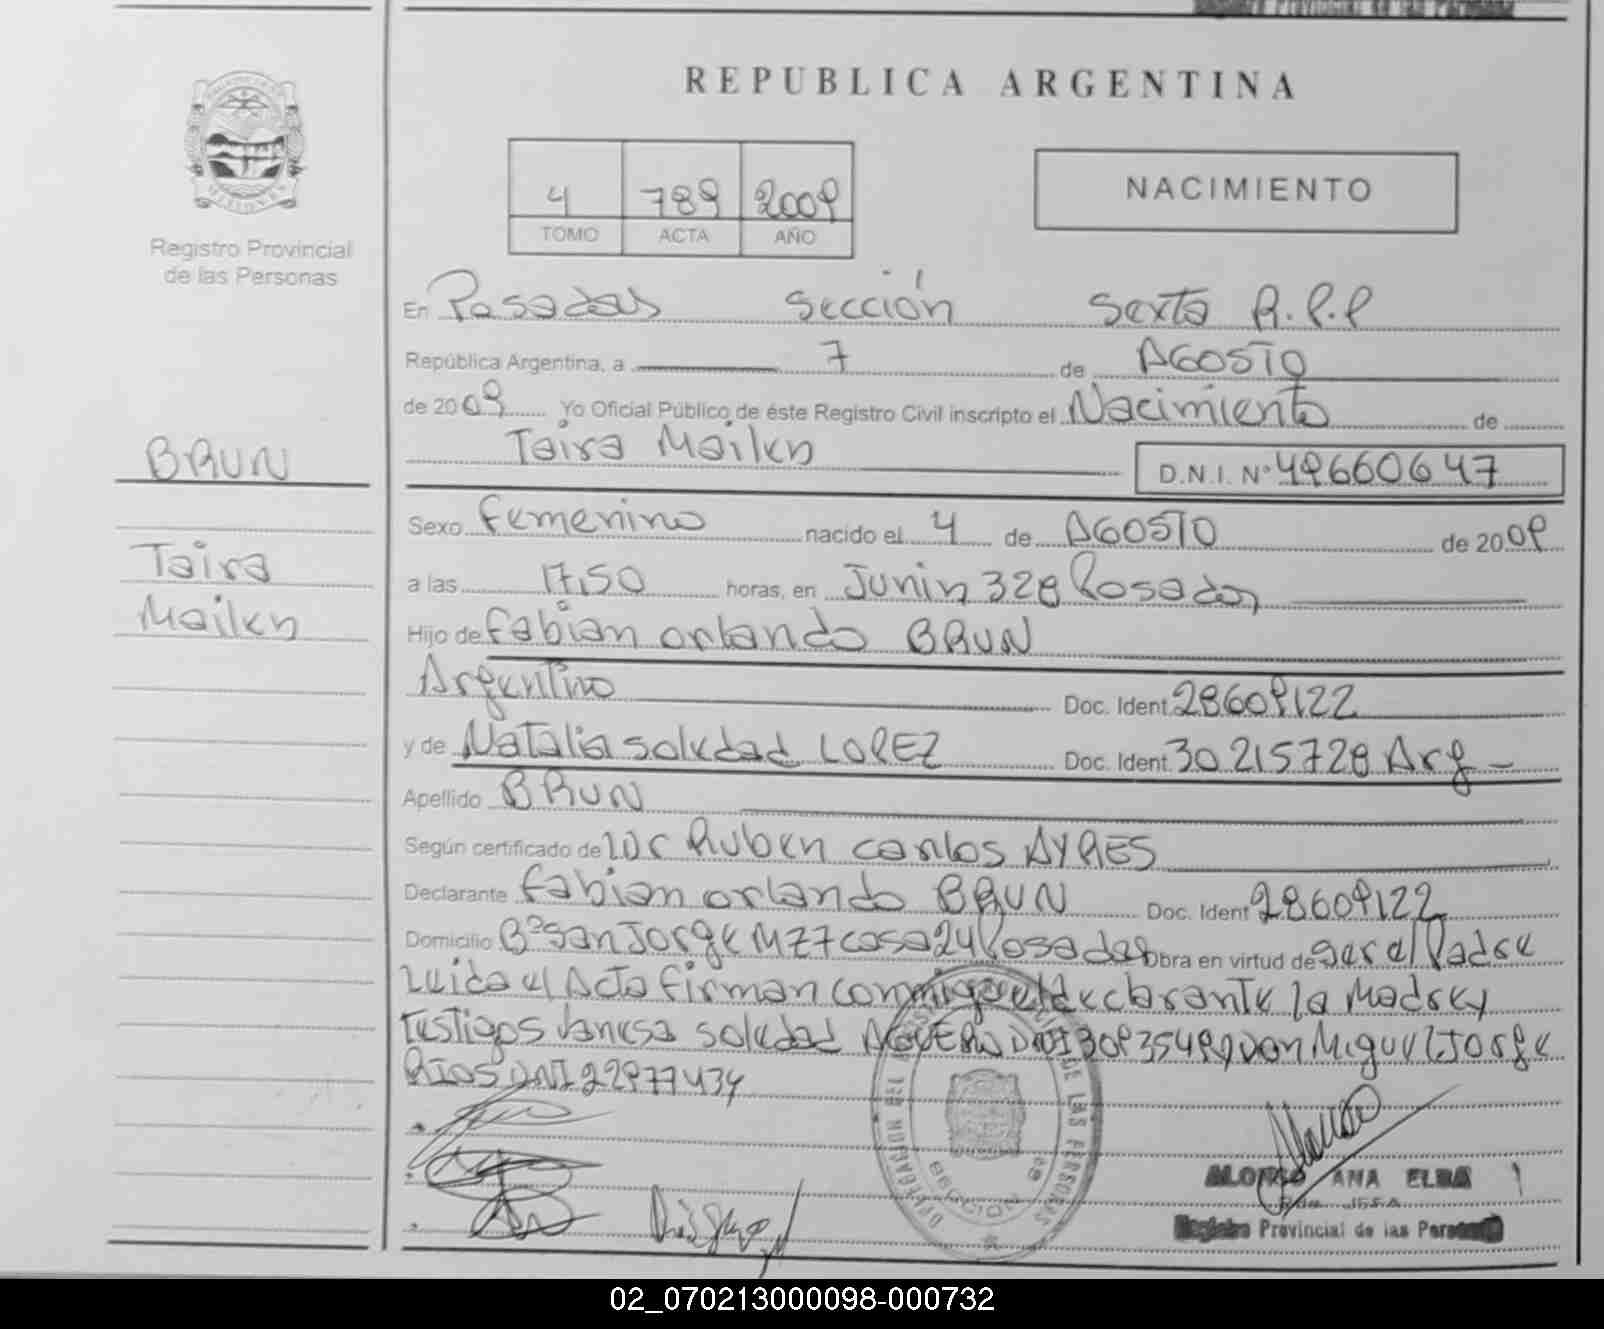 REPUBLICA ARGENTINA
4 789 2009
TOMO ACTA AÑO
NACIMIENTO
Registro Provincial
de las Personas
En Posadas sección sexta R.P.P
República Argentina, a 7 de AGOSTO
de 2009 Yo Oficial Público de éste Registro Civil inscripto el Nacimiento de
Taira Mailen D.N.I. Nº 49660647
BRUN
Taira
Mailen
Sexo femenino nacido el 4 de AGOSTO de 2009
a las 17,50 horas, en Junin 328 Posadas
Hijo de fabian orlando BRUN
Argentino Doc. Ident. 28609122
y de Natalia soledad LOPEZ Doc. Ident. 30215728 Arg
Apellido BRUN
Según certificado de Ruben carlos AYRES
Declarante fabian orlando BRUN Doc. Ident 28609122
Domicilio Bº San Jorge MZ7 casa 24 Posadas Obra en virtud de ser el Padre
Leida el Acta firman conmigo el declarante la Madre y
testigos Vanesa soledad AGUERO DNI 30935489 y Don Miguel Jorge
RIOS DNI 22977434
DELEGACION DEL DE LAS PERSONAS
SECCION 6ª
ALONSO ANA ELBA
Registro Provincial de las Personas
02_070213000098-000732